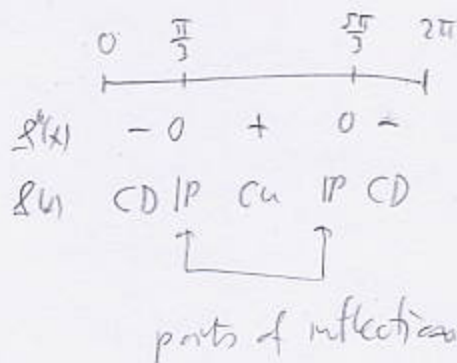 0 π/3 5π/3 2π
f''(x) - 0 + 0 -
f(x) CD IP CU IP CD
points of inflection